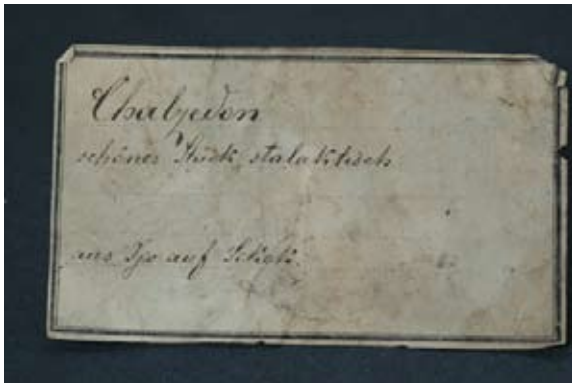 Chalzedon
schönes Stück, stalaktisch
aus auf